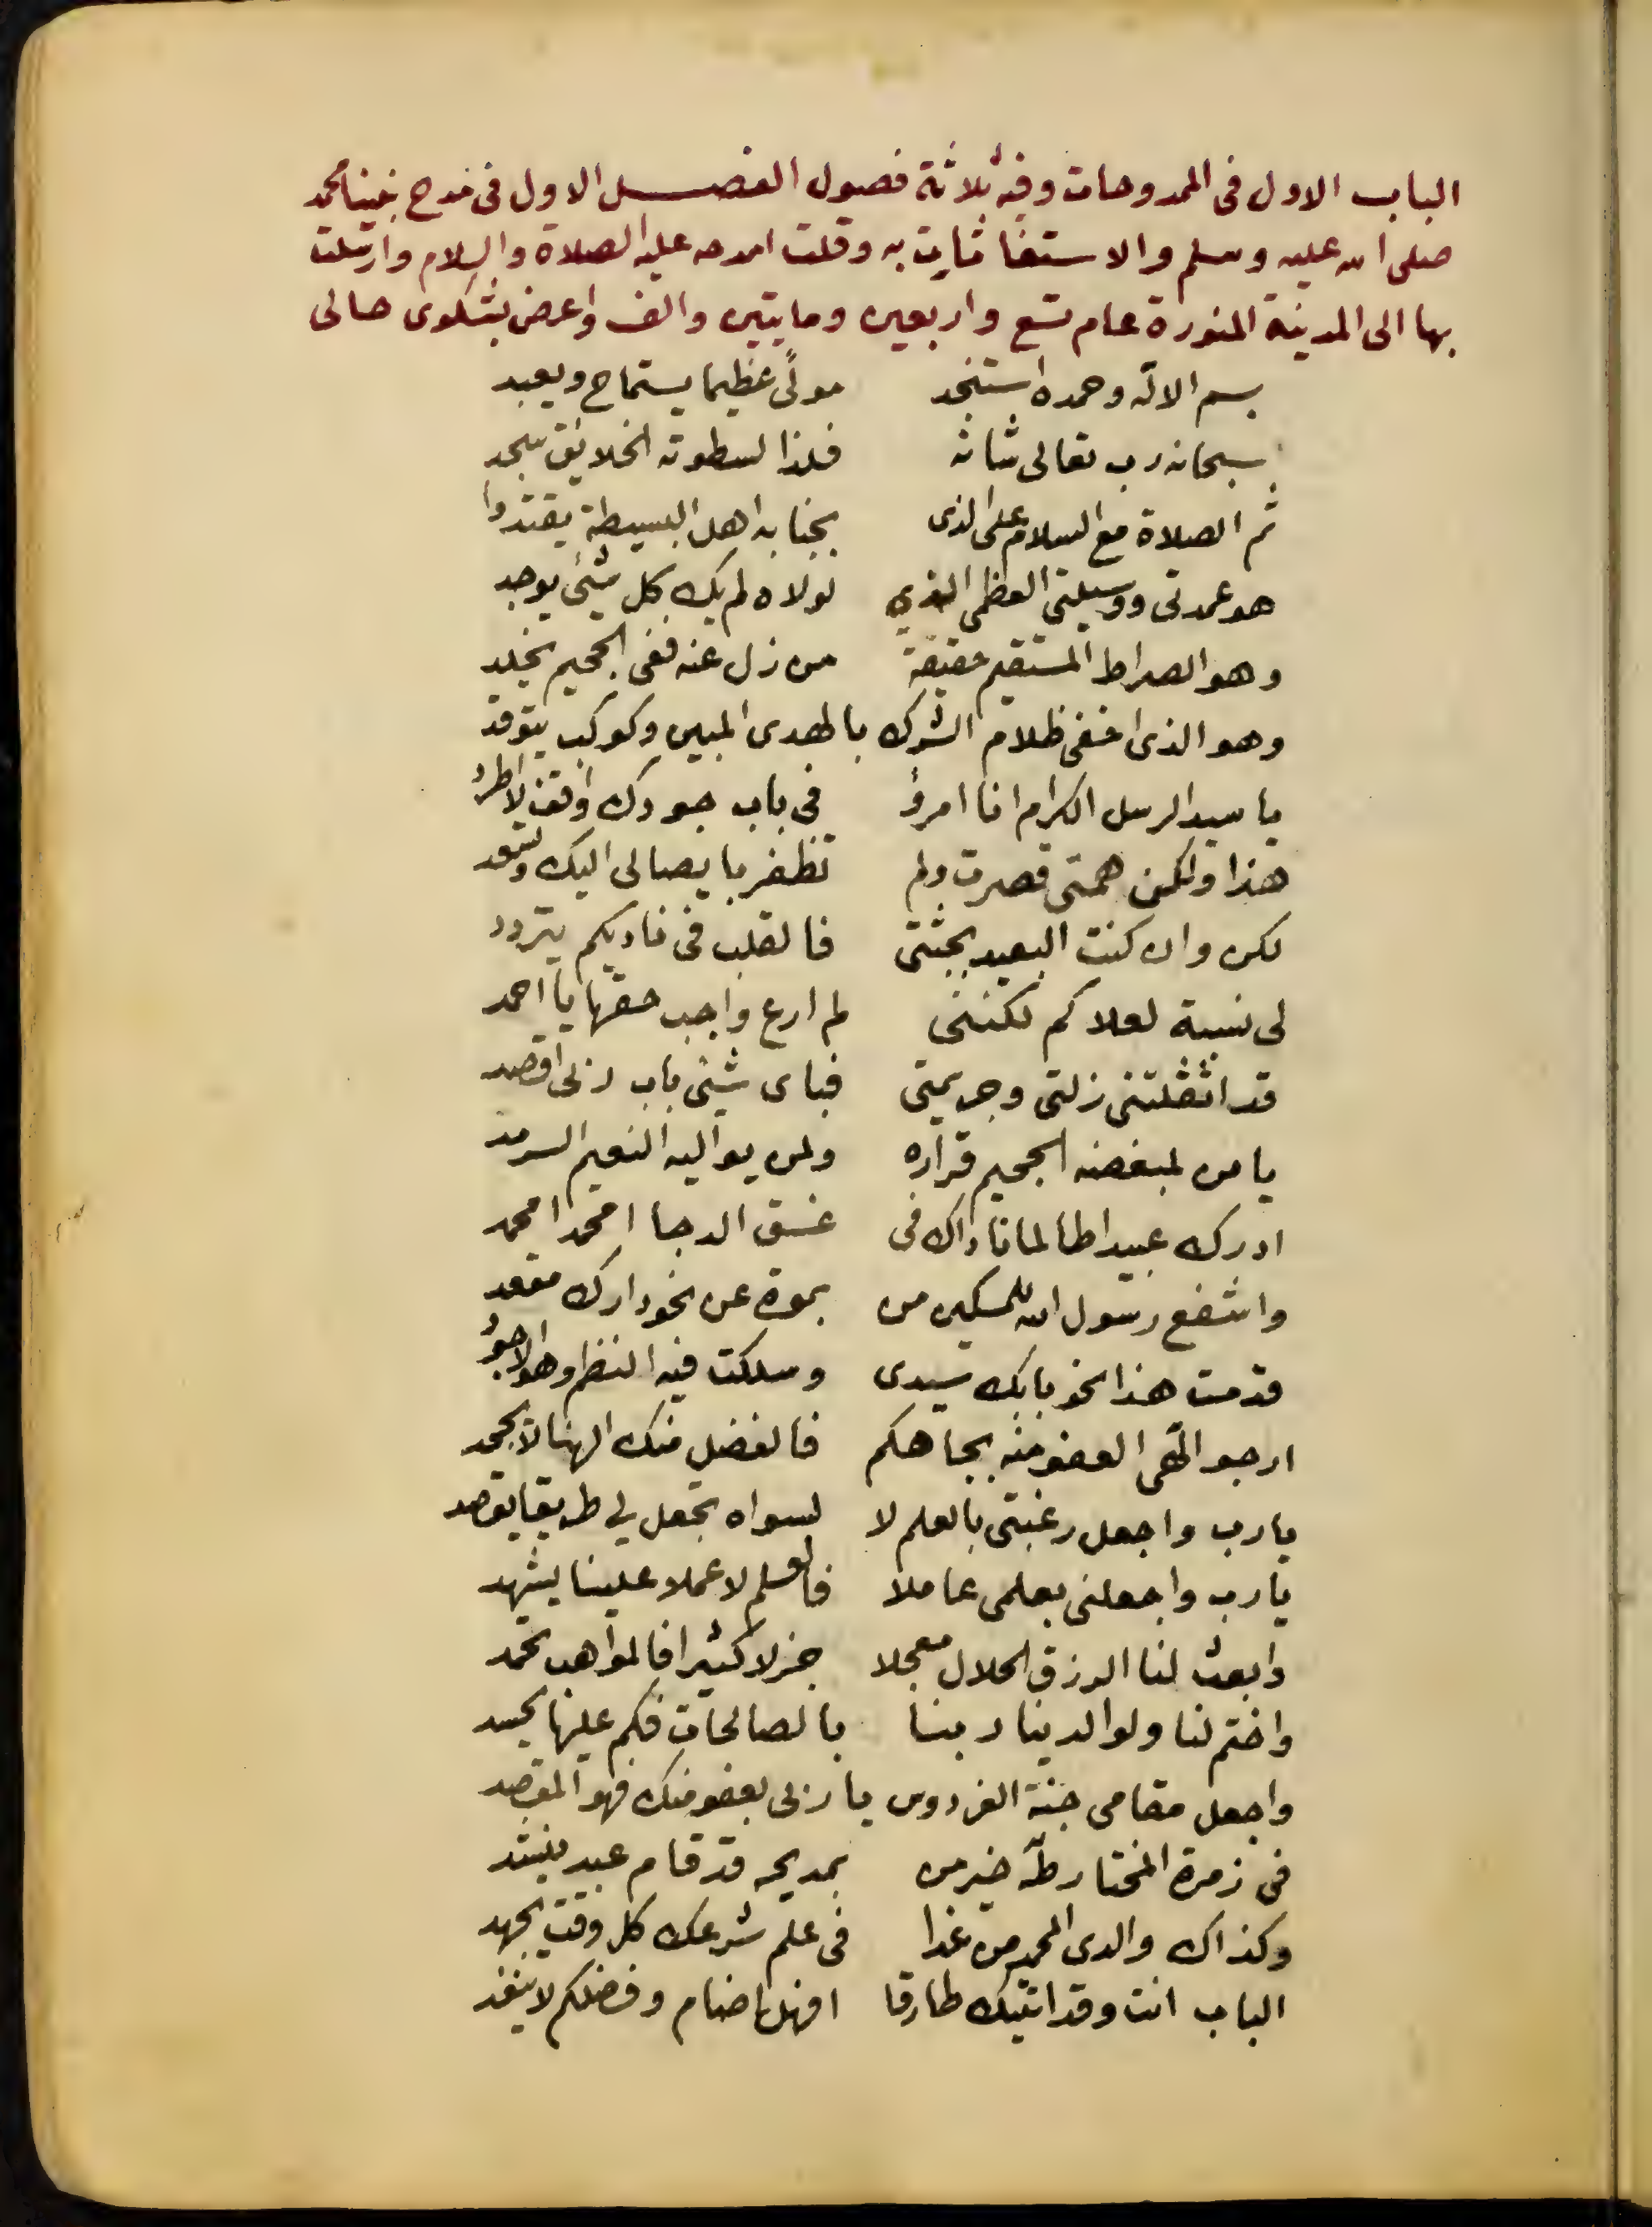 الباب الاول فى الممدوحات وفيه ثلاثة فصول الفصل الاول فى مدح نبينا محمد
صلى الله عليه وسلم والاستغاثات به وقلت امدحه عليه الصلاة والسلام وارسلت
بها الى المدينة المنورة عام تسع واربعين ومايتين والف واعرض بشكوى حالى
بسم الاله وحمده استنجد مولًى عظيما يستماح ويعبد
سبحانه رب تعالى شانه فلذا لسطوته الخلايق تسجد
ثم الصلاة مع السلام على الذى بجنابه اهل البسيطة يقتدوا
هو عمدتى ووسيلتى العظمى الذي لولاه لم يك كل شئ يوجد
وهو الصراط المستقيم حقيقة من زل عنه ففى الجحيم يخلد
وهو الذى اخفى ظلام الشرك بالهدى المبين وكوكب يتوقد
يا سيد الرسل الكرام انا امرؤ فى باب جودك واقف لا اطرد
هذا ولكن همتى قصرت ولم تظفر بايصالى اليك وتسعد
لكن وان كنت البعيد بجثتى فالقلب فى ناديكم يتردد
لى نسبة لعلاكم لكننى لم ارع واجب حقها يا احمد
قد اثقلتنى زلتى وجريمتى فباى شئ باب ربى اقصد
يا من لمبغضه الجحيم قراره ولمن يواليه النعيم السرمد
ادرك عبيدا طالما ناداك فى غسق الدجا امحمد امحمد
واشفع رسول الله للمسكين من بموته عن نحو دارك مقعد
قدمت هذا نحو بابك سيدى وسلكت فيه النظم وهو الاجود
ارجو الهى العفو منه بجاهكم فالفضل منك الهنا لا يجحد
يارب واجعل رغبتى بالعلم لا لسواه تجعل لي طريقا يقصد
يارب واجعلنى بعلمى عاملا فالعلم لا عملا علينا يشهد
وابعث لنا الرزق الحلال معجلا جزلا كثيرا فالمواهب تحمد
واختم لنا ولوالدينا ربنا بالصالحات فكم عليها يحسد
واجعل مقامى جنة الفردوس يا ربى بعفو منك فهو المقصد
فى زمرة المختار طه خير من بمديحه قد قام عبد ينشد
وكذاك والدى المحمد من غدا فى علم شرعك كل وقت يجهد
الباب انت وقد اتيتك طارقا افهل اضام وفضلكم لا ينفد